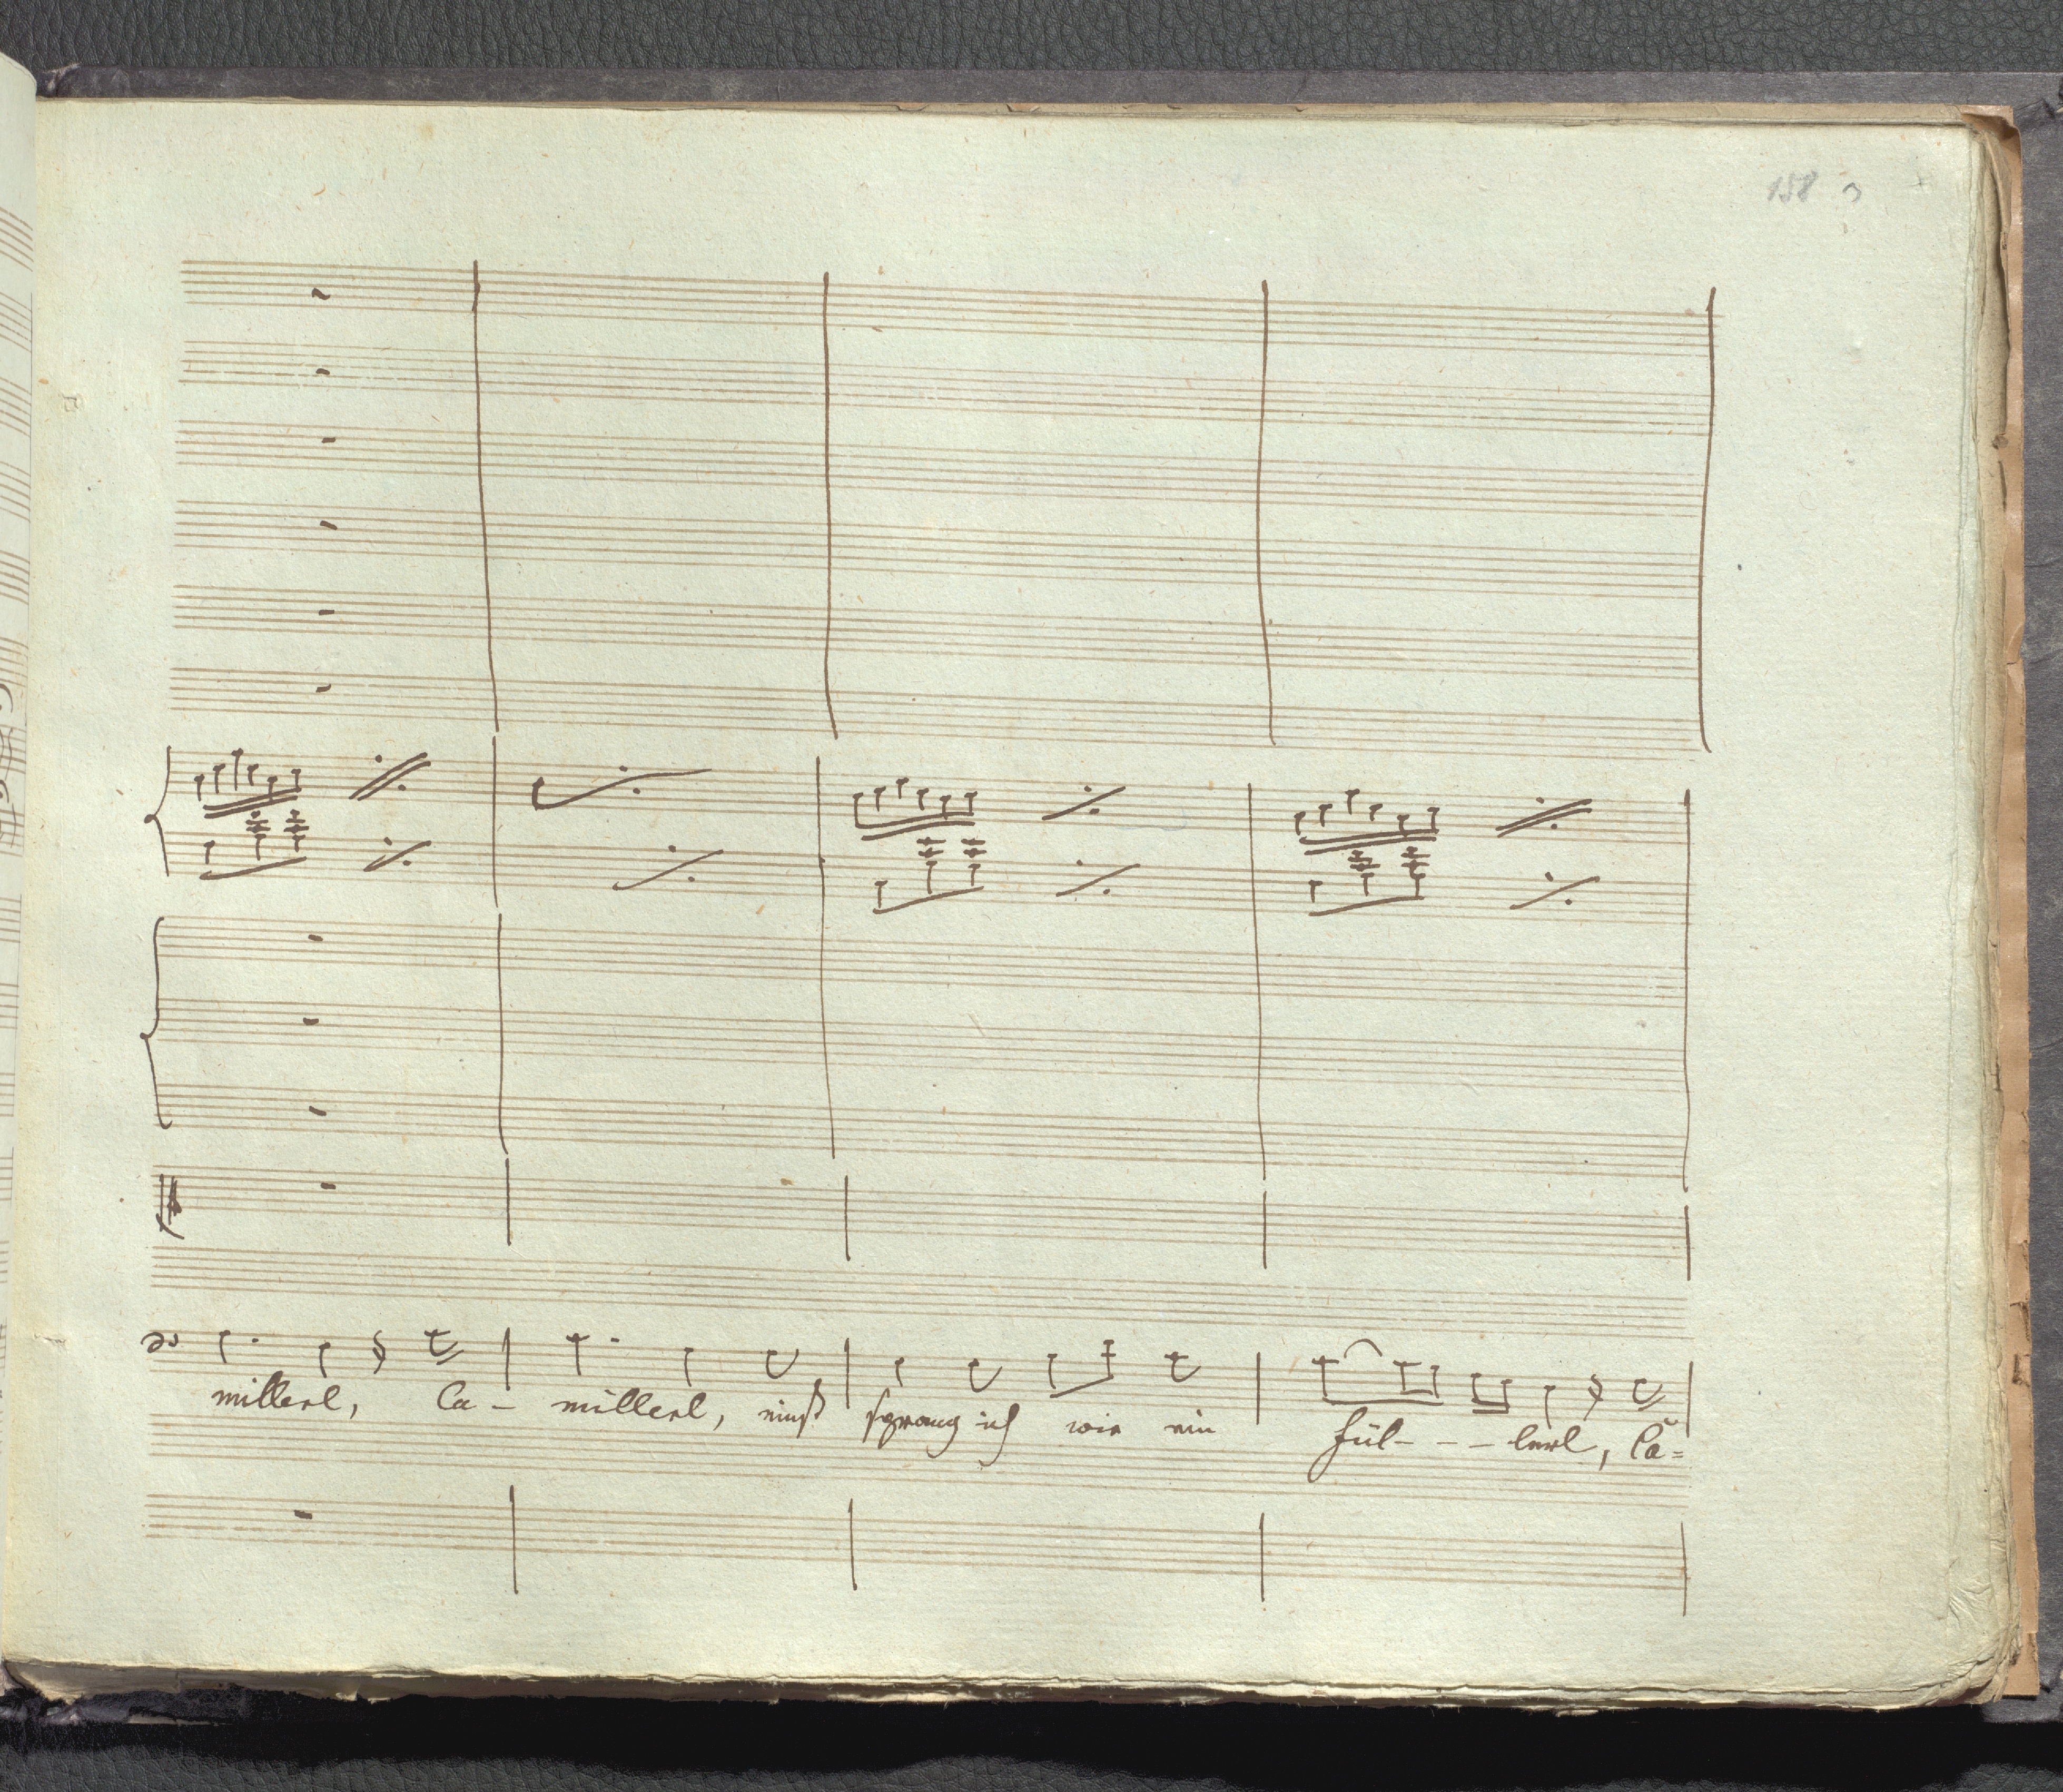 158
millerl, Ca - millerl, einst sprang ich wie ein fül - - - lerl, Ca=